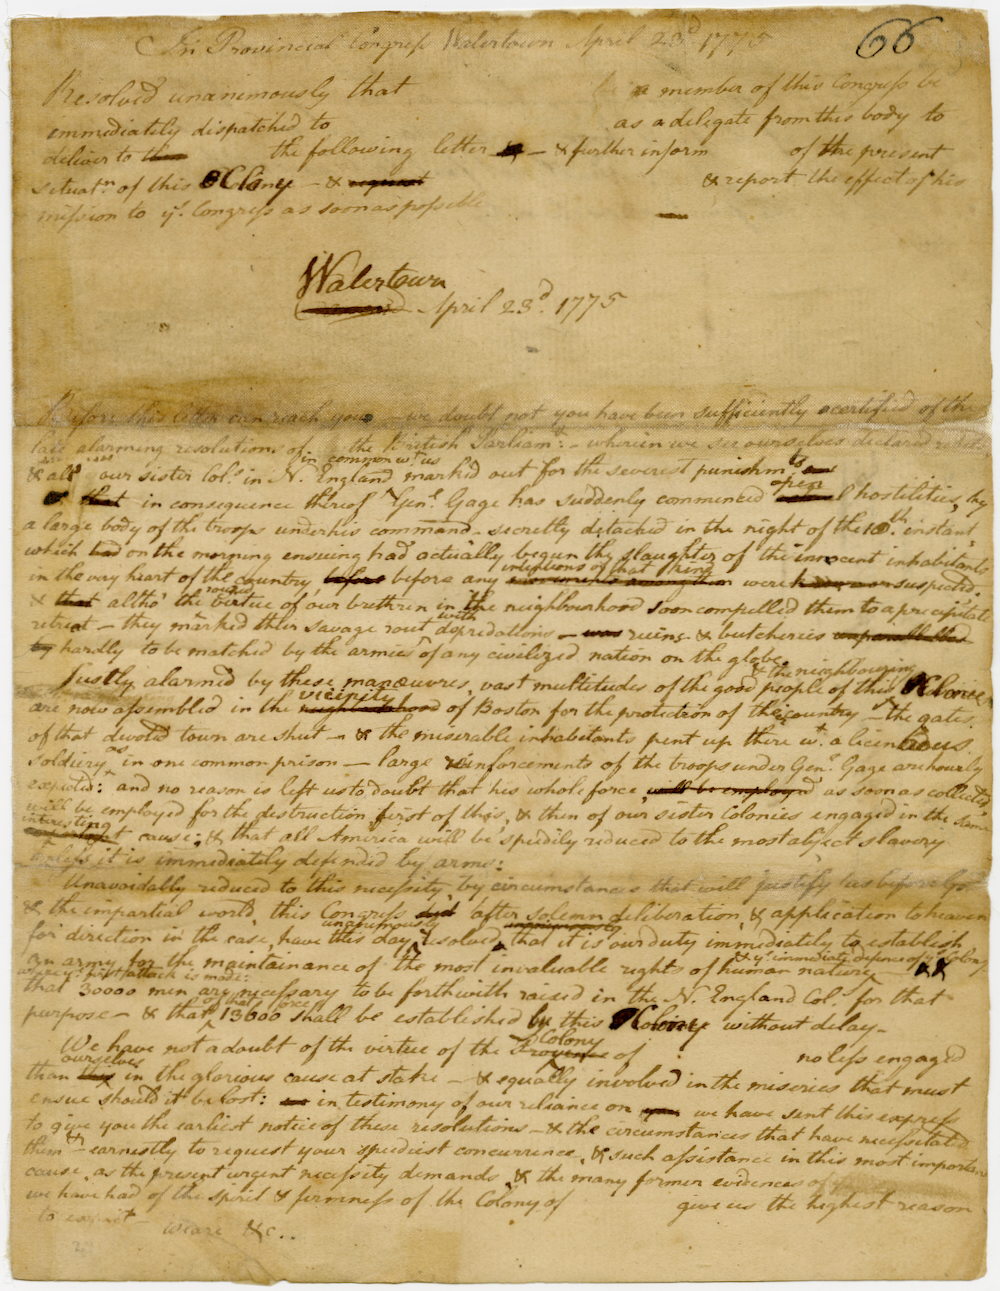 66
In Provincial Congress Watertown April 23d 1775
Resolved unanimously that a member of this Congress be
immediately dispatched to as a delegate from this body to
deliver to the following letter — & further inform of the present
situatn. of this Clony — & request & report the effect of his
mission to ye. Congress as soon as possible
Watertown
April 23d. 1775
Before this letter can reach you — we doubt not you have been sufficiently certified of the
late alarming resolutions of the British Parliamt: — wherein we see ourselves declared
in common wt. us
& all our sister Cols. in N. England markid out for the severest punishmts
open
that in consequence therof Genl. Gage has suddenly commenced hostilities, by
a large body of the troops under his command — secretly detached in the night of the 18th. instant
which had on the morning ensuing had actually begun the slaughter of the innocent inhabitants
intentions of that kind
in the very heart of the country before before any were suspected.
roused
& that altho' the virtue of our brethren in the neighbourhood soon compelled them to a precipitate
with
retreat — they markd their savage rout depredations — was ruins — & butcheries unparallelled
by hardly to be matched by the armies of any civilized nation on the globe.
& the neighbouring
Justly alarmed by these manœuvres, vast multitudes of the good people of this
vicinity
are now assembled in the neighbourhood of Boston for the protection of the country — the gates
of that devoted town are shut — & the miserable inhabitants pent up there wt. a licentious
soldiery as in one common prison — large reinforcements of the troops under Genl. Gage are hourly
expected: and no reason is left us to doubt that his whole force will be employed as soon as collected
will be employed for the destruction first of this, & then of our sister Colonies engaged in the same
interesting
cause; & that all America will be speedily reduced to the most abject slavery
unless it is immediately defended by arms:
Unavoidably reduced to this necessity by circumstances that will justify us before God
& the impartial world, this Congress after solemn deliberation, & application to heaven
unanimously unanimously
for direction in the case, have this day resolved, that it is our duty immediately to establish
& ye. immediate defence of ye. Colony
an army for the maintainance of the most invaluable rights of human nature —
where ye. first attack is made:
that 30000 men are necessary to be forthwith raised in the N. England Cols. for that
of that force
purpose — & that 13600 shall be established by this Colony without delay —
Colony
We have not a doubt of the virtue of the Province of no less engaged
ourselves
than this in the glorious cause at stake — & equally involved in the miseries that must
ensue should it be lost: in testimony of our reliance on you we have sent this express
to give you the earliest notice of these resolutions — & the circumstances that have necessitated
them — & earnestly to request your speediest concurrence, & such assistance in this most important
cause, as the present urgent necessity demands, & the many former evidences of
we have had of the spirit & firmness of the Colony of give us the highest reason
to expect — we are &c..